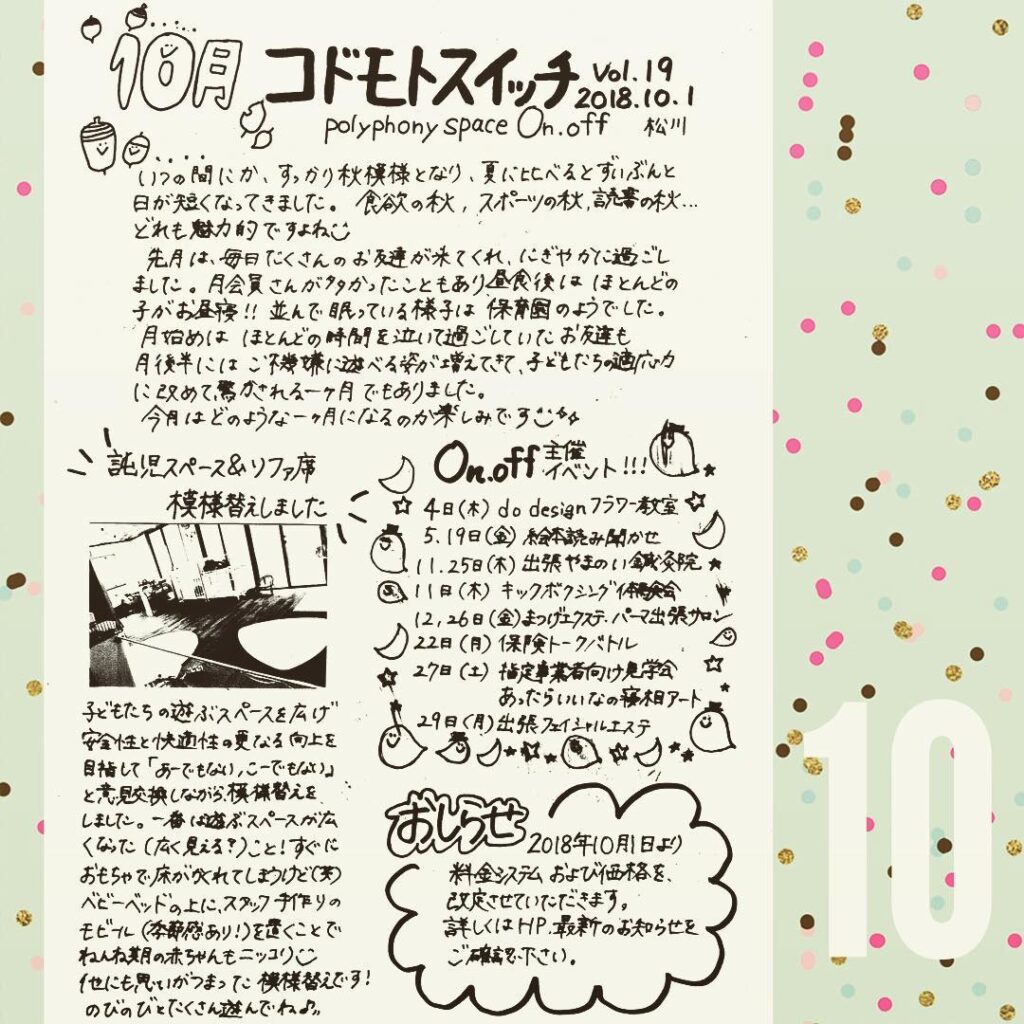 10月
コドモトスイッチ
Vol.19
2018.10.1
polyphony space On.off 松川
いつの間にか、すっかり秋模様となり、夏に比べるとずいぶんと
日が短くなってきました。食欲の秋, スポーツの秋, 読書の秋...
どれも魅力的ですよね
先月は、毎日たくさんのお友達が来てくれ、にぎやかに過ごし
ました。月会員さんが多かったこともあり昼食後は ほとんどの
子がお昼寝!! 並んで眠っている様子は 保育園のようでした。
月始めは ほとんどの時間を泣いて過ごしていたお友達も
月後半には ご機嫌に遊べる姿が増えてきて、子どもたちの適応力
に改めて驚かされる一ヶ月でもありました。
今月はどのような一ヶ月になるのか楽しみです
託児スペース&ソファ席
模様替えしました
子どもたちの遊ぶスペースを広げ
安全性と快適性の更なる向上を
目指して「あーでもない,こーでもない」
と意見交換しながら、模様替えを
しました。一番は遊ぶスペースが広
くなった(広く見える?)こと!すぐに
おもちゃで床がうもれてしまうけど(笑)
ベビーベッドの上に、スタッフ手作りの
モビール(季節感あり!)を置くことで
ねんね期の赤ちゃんもニッコリ
他にも思いがつまった模様替えです!
のびのびとたくさん遊んでね♪
On.off 主催
イベント!!!
4日(木) do design フラワー教室
5.19日(金) 絵本読み聞かせ
11.25日(木) 出張やまのい鍼灸院
11日(木) キックボクシング体験会
12,26日(金) まつげエクステ・パーマ出張サロン
22日(月) 保険トークバトル
27日(土) 指定事業者向け見学会
あったらいいなの寝相アート
29日(月) 出張フェイシャルエステ
おしらせ
2018年10月1日より
料金システムおよび価格を、
改定させていただきます。
詳しくはHP.最新のお知らせを
ご確認下さい。
10